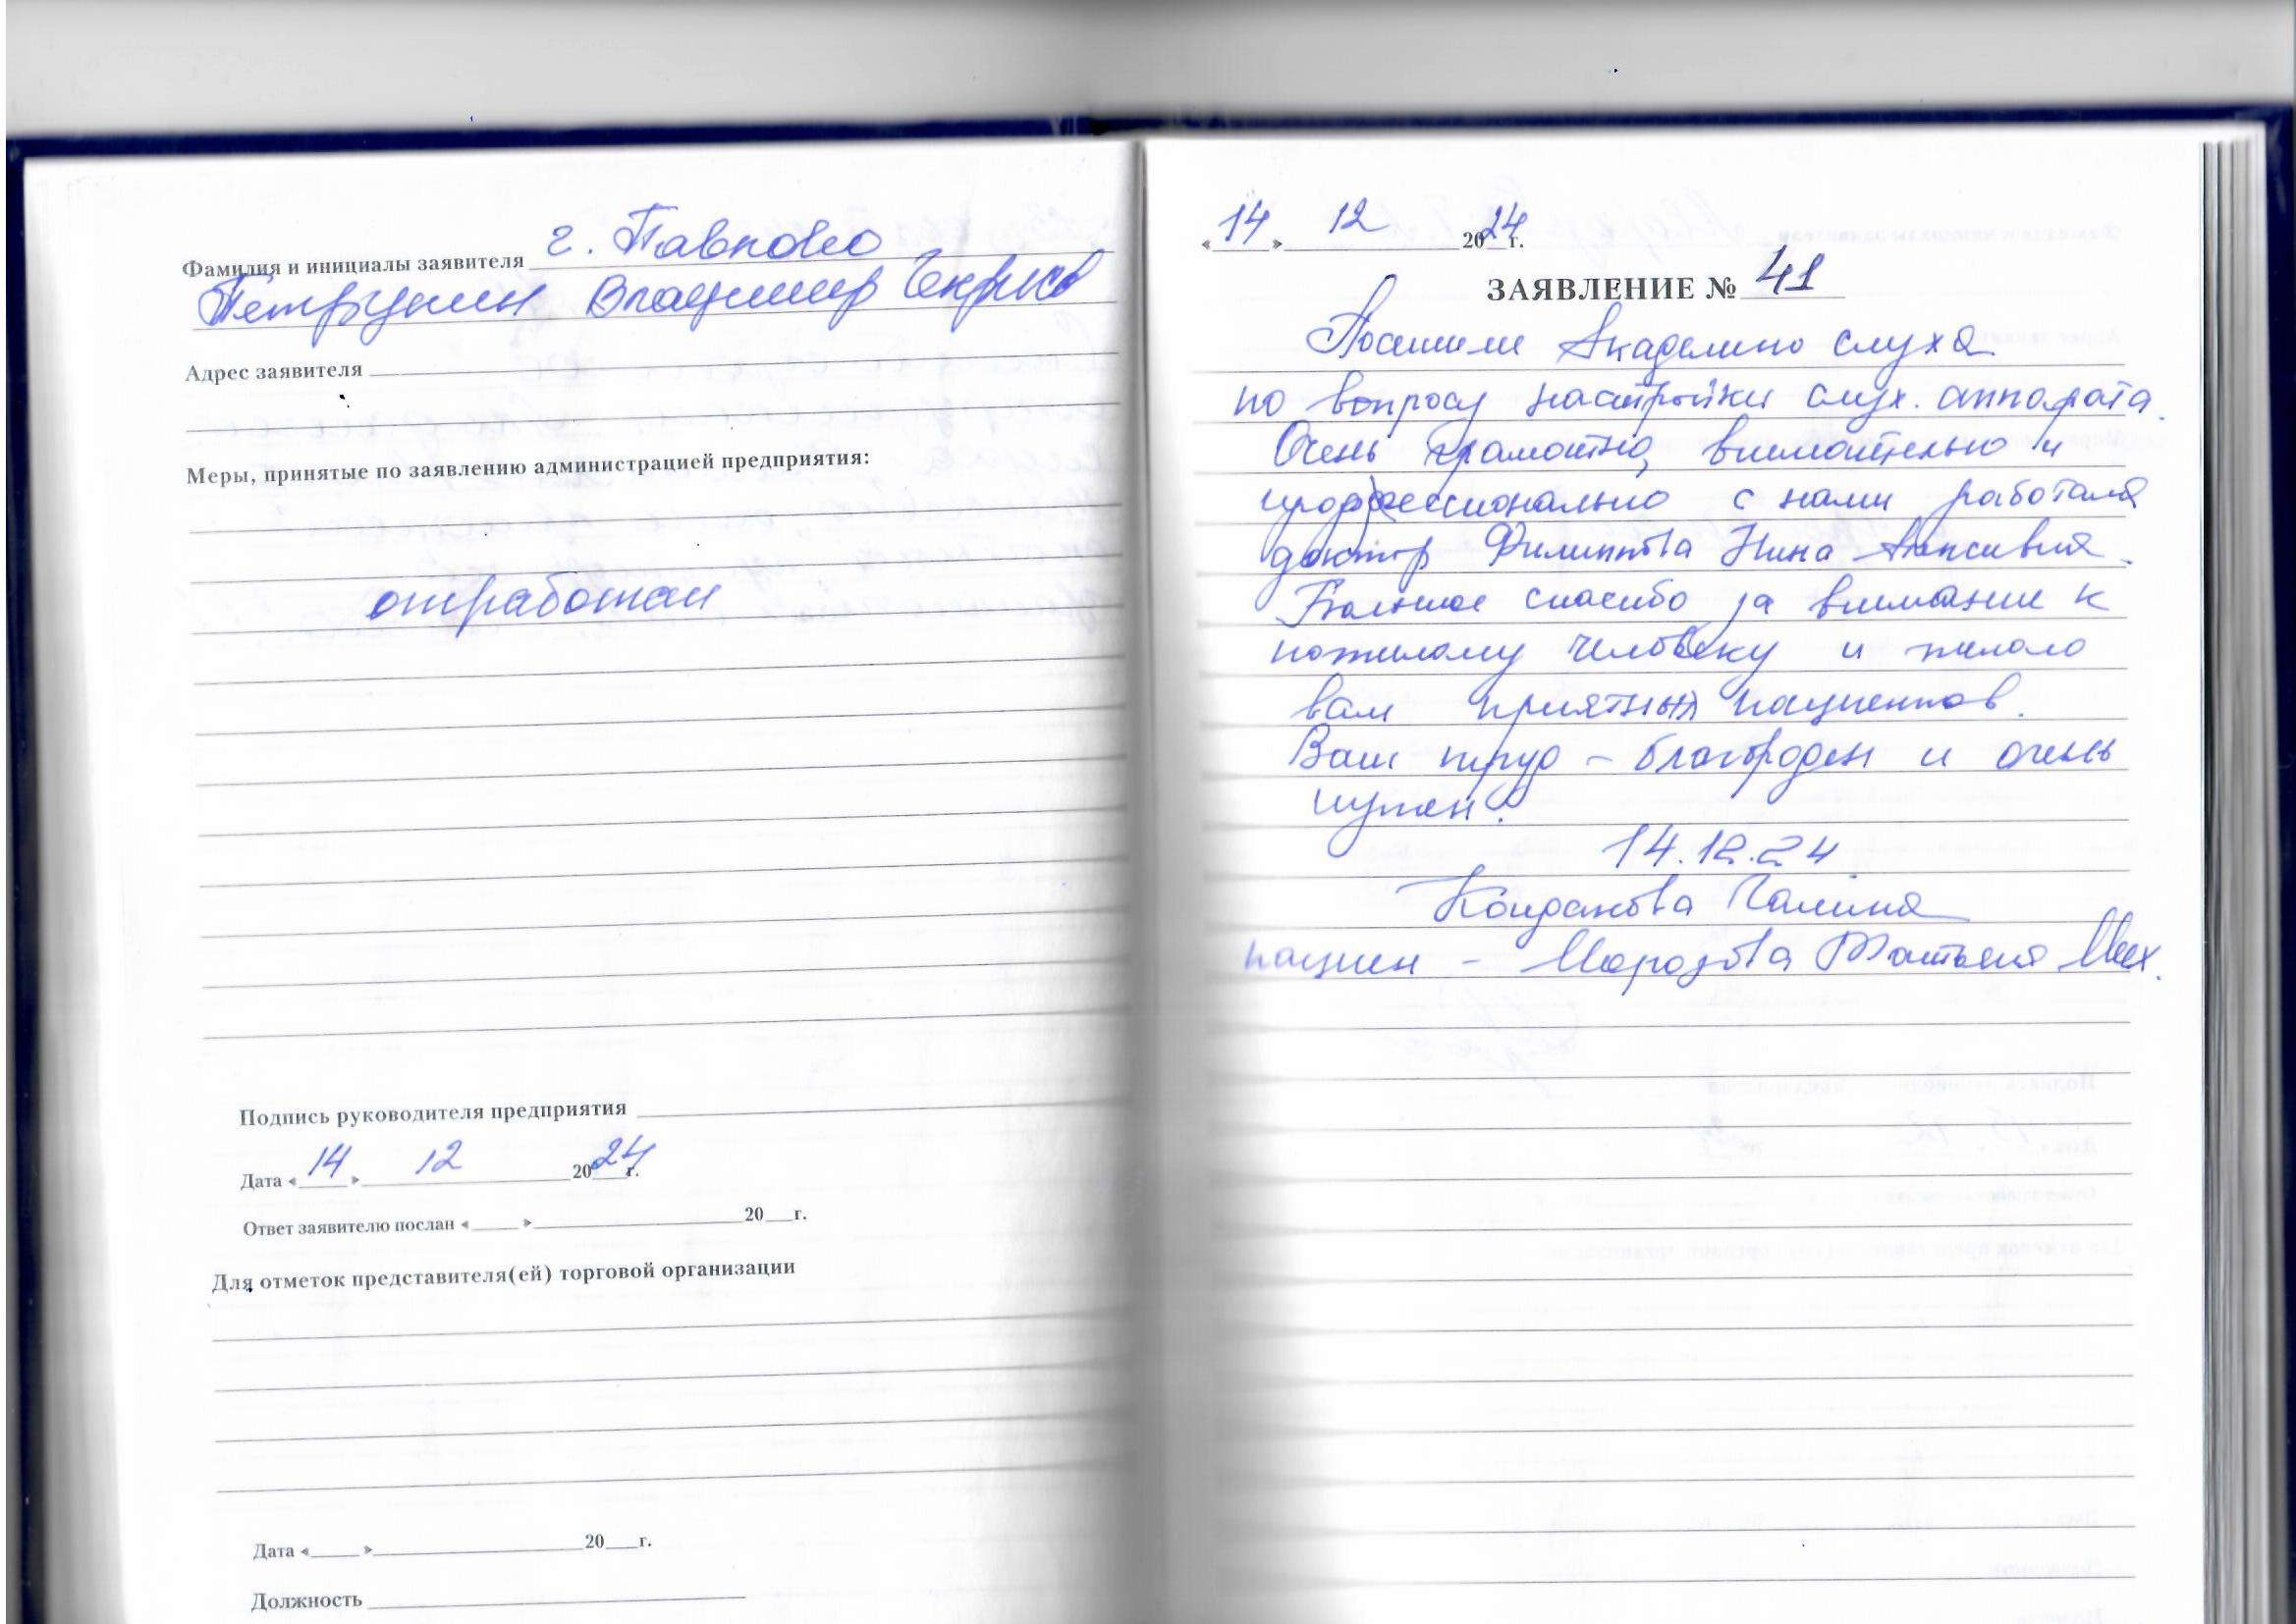 Фамилия и инициалы заявителя г. Павлово
Петрунин Владимир
Адрес заявителя
Меры, принятые по заявлению администрацией предприятия:
отработан
Подпись руководителя предприятия
Дата «14» 12 2024г.
Ответ заявителю послан «____» 20__г.
Для отметок представителя(ей) торговой организации
Дата «____» 20__г.
Должность
«14» 12 2024г.
ЗАЯВЛЕНИЕ № 41
Посетили Академию слуха
по вопросу настройки слух. аппарата.
Очень грамотно, внимательно и
профессионально с нами работала
доктор Филиппова Нина
Большое спасибо за внимание к
пожилому человеку и желаю
вам приятных пациентов.
Ваш труд – благороден и очень
нужен!
14.12.24
Кондакова Галина
пациен – Морозова Татьяна Мих.